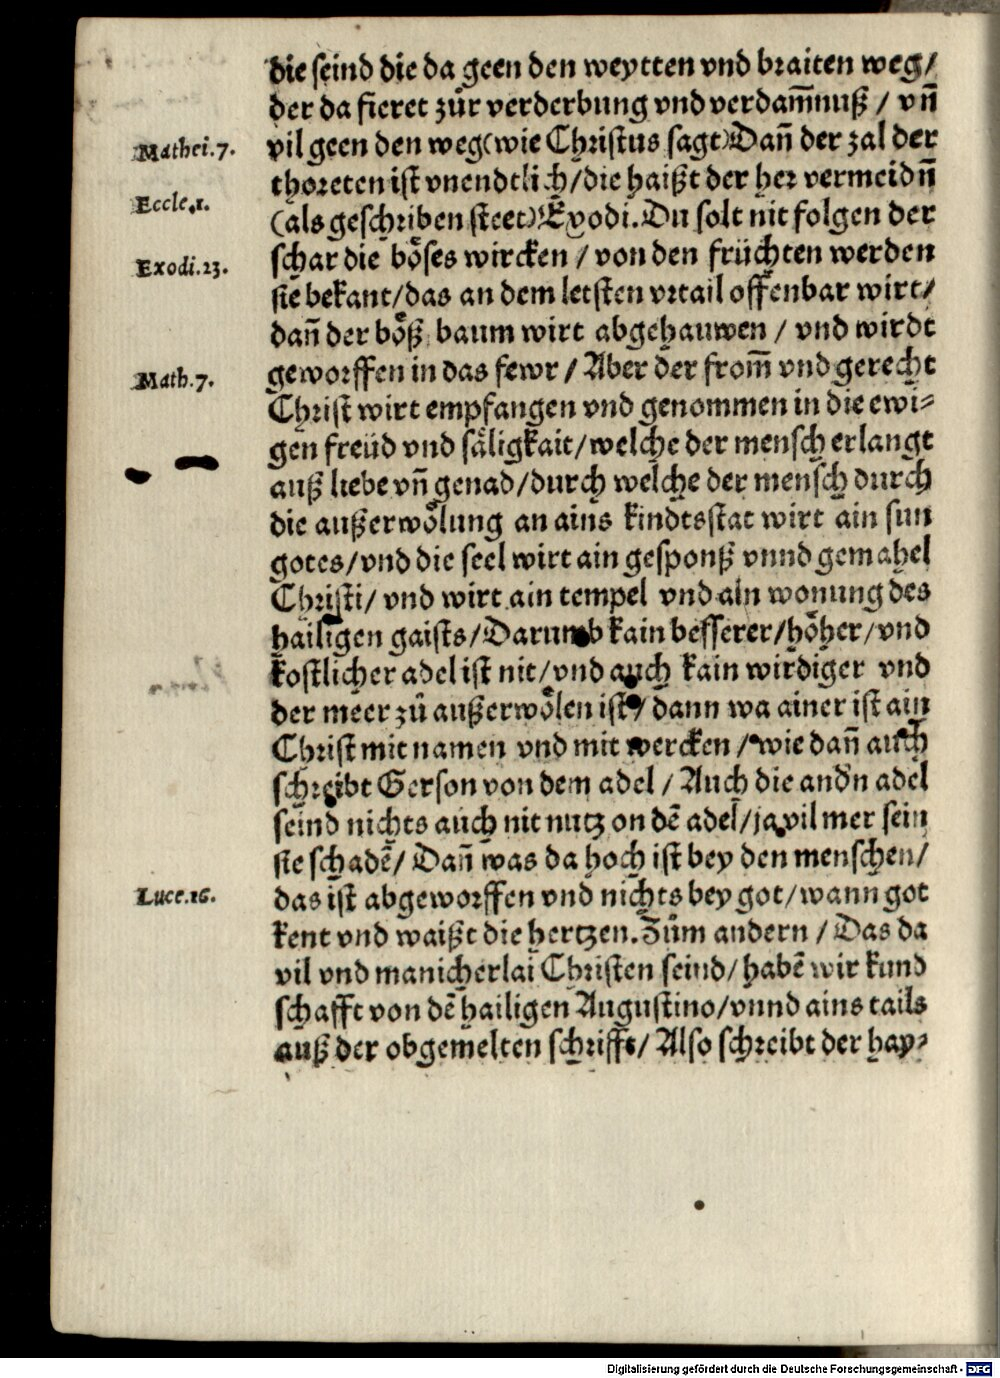 die seind die da geen den weytten vnd braiten weg/
der da fieret zůr verderbung vnd verdam̃nuß / vñ
Mathei.7. vil geen den weg(wie Christus sagt)Dañ der zal der
thoreten ist vnendtlich/die haißt der her vermeidñ
Eccle.1. (als geschriben steet)Exodi.Du solt nit folgen der
Exodi.23. schar die böses wircken / von den früchten werden
sie bekant/das an dem letsten vrtail offenbar wirt/
dañ der böß baum wirt abgehauwen / vnd wirdt
Math.7. geworffen in das fewr / Aber der from̃ vnd gerecht
Christ wirt empfangen vnd genommen in die ewi⸗
gen freüd vnd säligkait/welche der mensch erlangt
auß liebe vñ genad/durch welche der mensch durch
die außerwölung an ains kindtsstat wirt ain sun
gotes/vnd die seel wirt ain gesponß vnnd gemahel
Christi/ vnd wirt ain tempel vnd ain wonung des
hailigen gaists/Darumb kain besserer/höher/vnd
kostlicher adel ist nit/vnd auch kain wirdiger vnd
der meer zů außerwölen ist/ dann wa ainer ist ain
Christ mit namen vnd mit wercken / wie dañ auch
schreibt Gerson von dem adel / Auch die andn̄ adel
seind nichts auch nit nutz on dē adel/ja vil mer sein
sie schadē/ Dañ was da hoch ist bey den menschen/
Luce.16. das ist abgeworffen vnd nichts bey got/wann got
kent vnd waißt die hertzen.Zům andern / Das da
vil vnd manicherlai Christen seind/ habē wir kund
schafft von dē hailigen Augustino/vnnd ains tails
auß der obgemelten schrifft/ Also schreibt der hay⸗
Digitalisierung gefördert durch die Deutsche Forschungsgemeinschaft - DFG